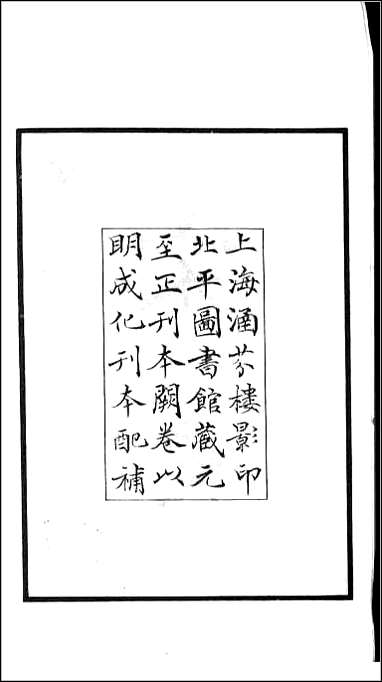 上海涵芬樓影印
北平圖書館藏元
至正刊本闕卷以
明成化刊本配補